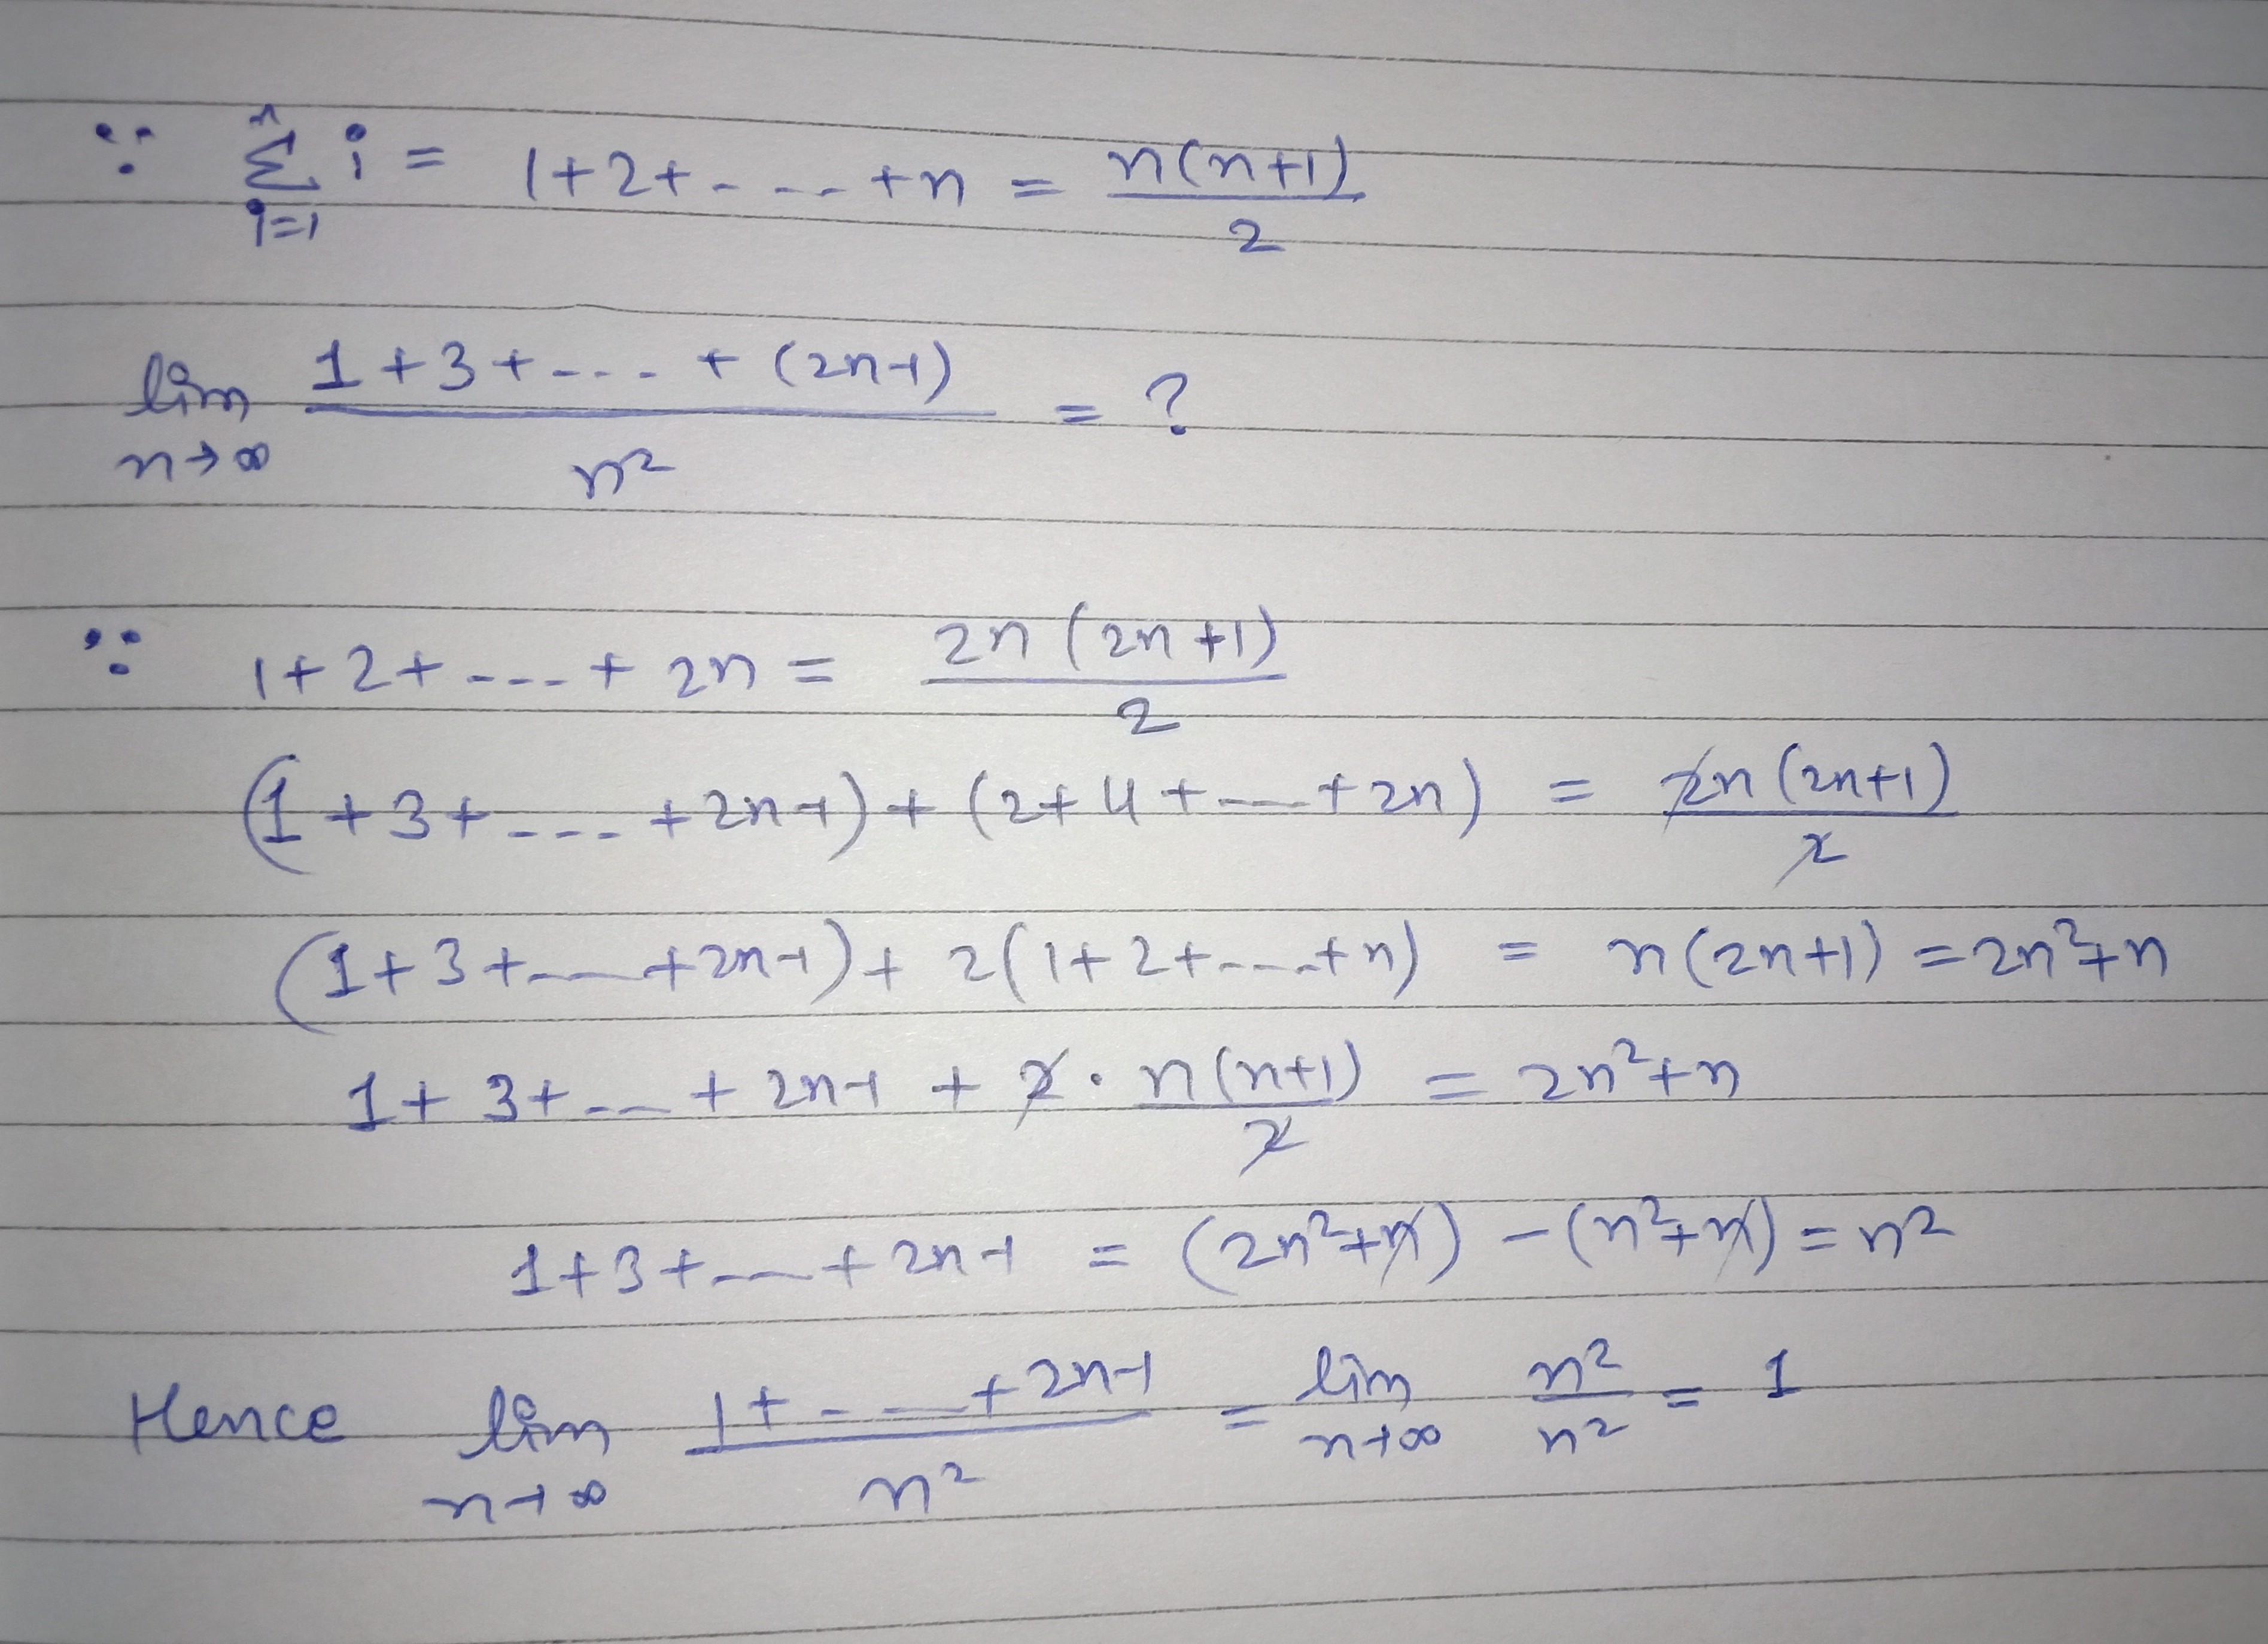 ∵ \sum_{i=1}^{n} i = 1+2+----+n = \frac{n(n+1)}{2}
\lim_{n→∞} \frac{1+3+----+(2n-1)}{n^2} = ?
∵ 1+2+----+2n = \frac{2n(2n+1)}{2}
(1+3+----+2n-1)+(2+4+---+2n) = \frac{2n(2n+1)}{2}
(1+3+---+2n-1)+2(1+2+---+n) = n(2n+1) = 2n^2+n
1+3+---+2n-1+2·\frac{n(n+1)}{2} = 2n^2+n
1+3+---+2n-1 = (2n^2+n)-(n^2+n) = n^2
Hence \lim_{n→∞} \frac{1+----+2n-1}{n^2} = \lim_{n→∞} \frac{n^2}{n^2} = 1